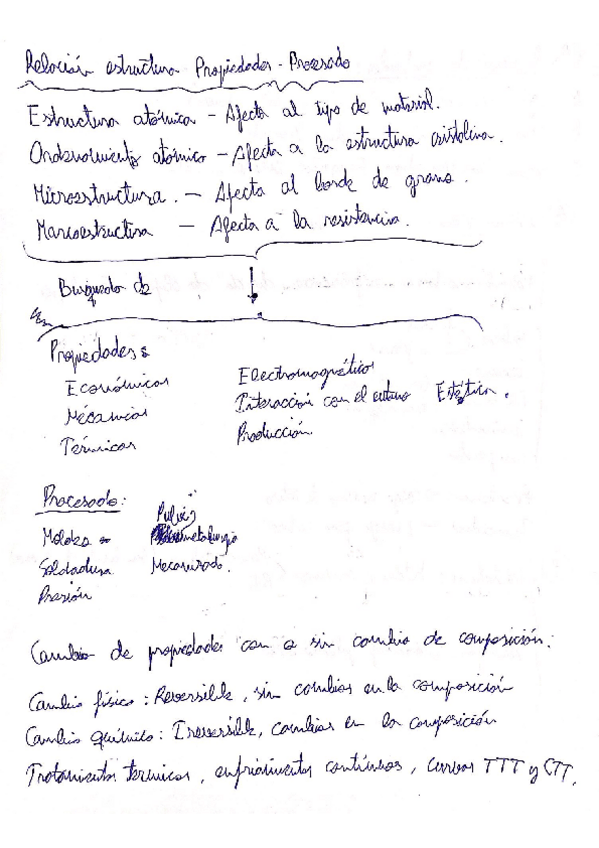 Relación estructura - Propiedades - Procesado
Estructura atómica - Afecta al tipo de material.
Ordenamiento atómico - Afecta a la estructura cristalina.
Microestructura. - Afecta al borde de grano.
Macroestructura - Afecta a la resistencia.
Busqueda de
Propiedades:
Económicas Electromagnéticas
Mécanicas Interaccion con el entorno Estética.
Térmicas Producción
Procesado:
Pulvi
Moldeo metalurgia
Soldadura Mecanizado.
Presión
Cambio de propiedades con o sin cambio de composición.
Cambio físico: Reversible, sin cambios en la composición
Cambio químico: Irreversible, cambios en la composición
Tratamientos termicos, enfriamientos continuos, Curvas TTT y CTT.